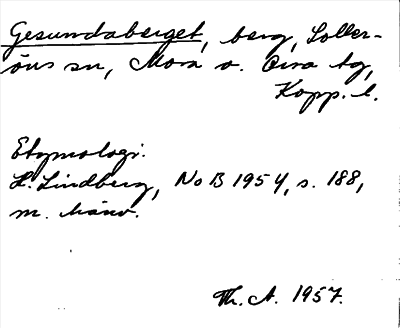 Gesundaberget, berg, Soller-
öns sn, Mora o. Orsa tg,
Kopp. l.
Etymologi.
H. Lindberg, NoB 1954, s. 188,
m. hänv.
Th. A. 1957.